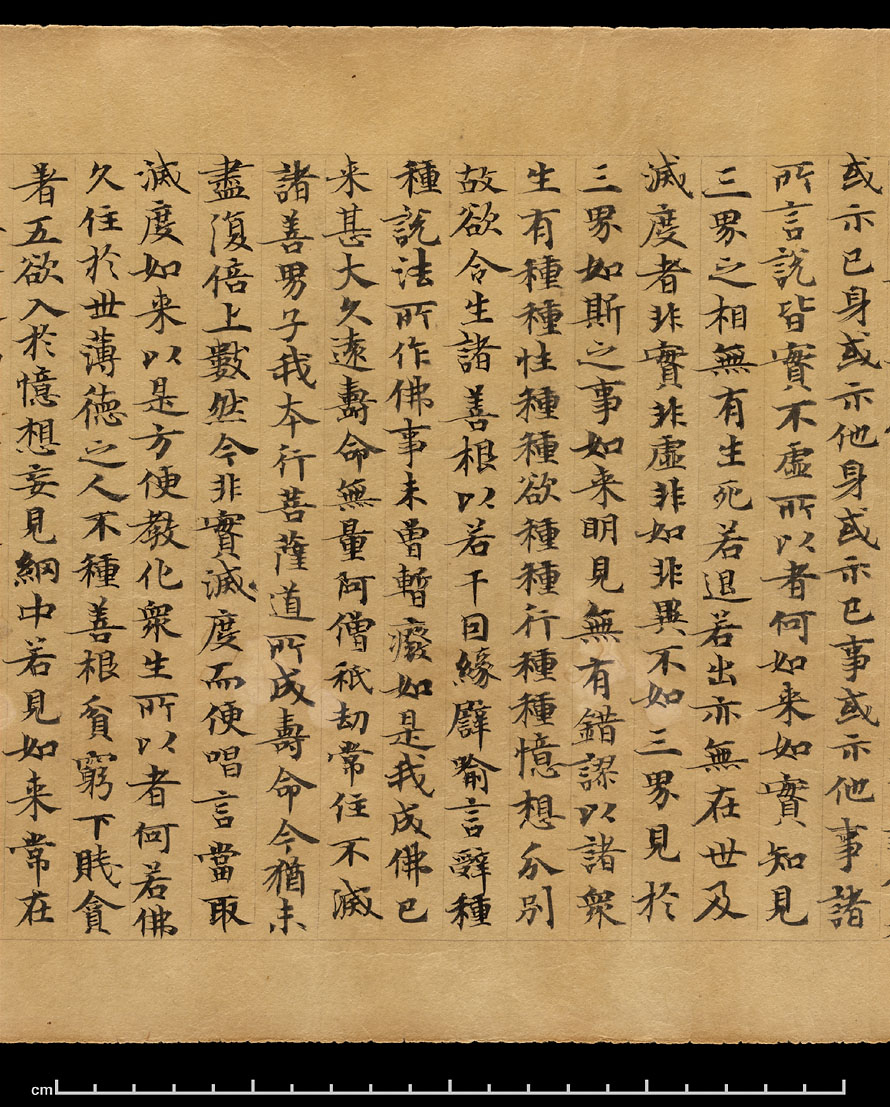 或示己身或示他身或示己事或示他事諸
所言說皆實不虛所以者何如来如實知見
三界之相無有生死若退若出亦無在世及
滅度者非實非虛非如非異不如三界見於
三界如斯之事如来明見無有錯謬以諸衆
生有種種性種種欲種種行種種憶想分別
故欲令生諸善根以若干因緣譬喻言辭種
種說法所作佛事未曾暫癈如是我成佛已
来甚大久遠壽命無量阿僧祇劫常住不滅
諸善男子我本行菩薩道所成壽命今猶未
盡復倍上數然今非實滅度而便唱言當取
滅度如来以是方便教化衆生所以者何若佛
久住於世薄德之人不種善根貧窮下賤貪
著五欲入於憶想妄見網中若見如来常在
cm